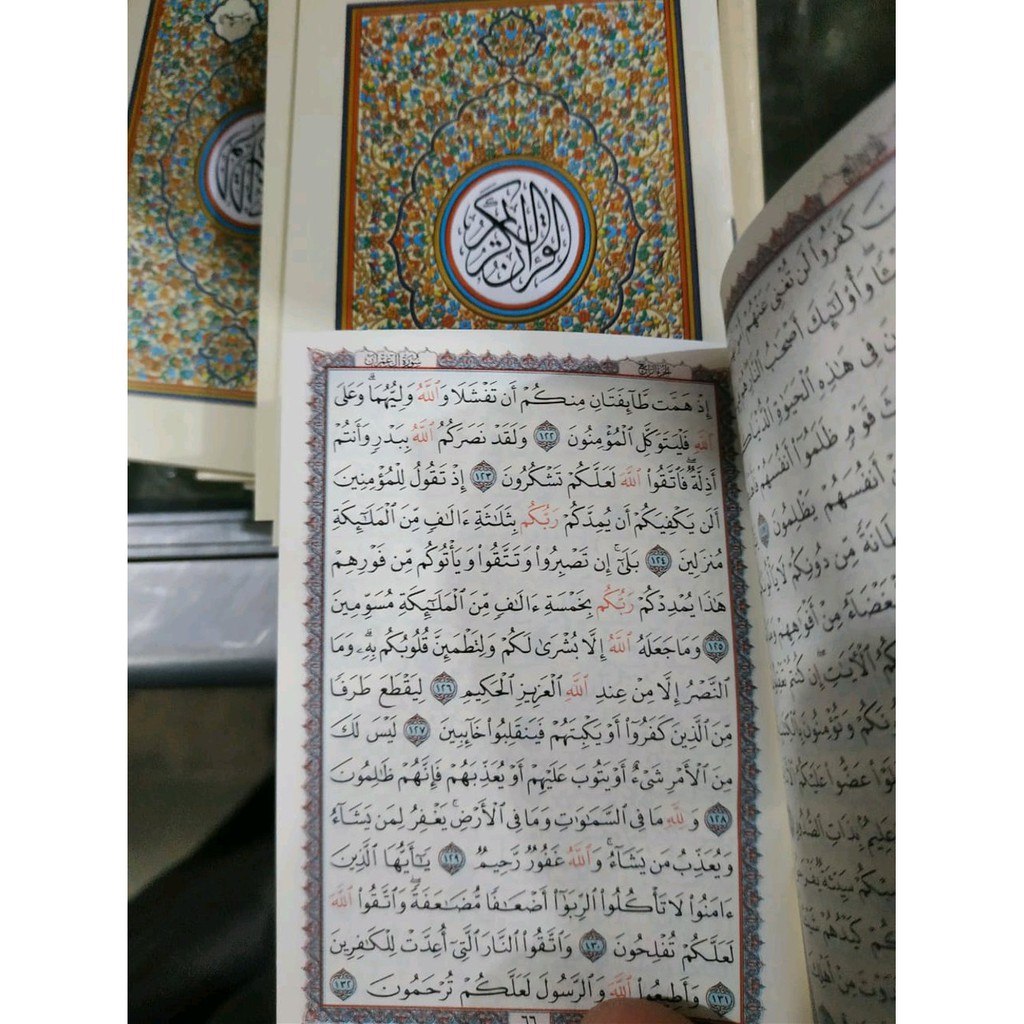 القرآن الكريم
سورة آل عمران
الجزء الرابع
إِذْ هَمَّت طَّآئِفَتَانِ مِنكُمْ أَن تَفْشَلَا وَٱللَّهُ وَلِيُّهُمَا ۗ وَعَلَى
ٱللَّهِ فَلْيَتَوَكَّلِ ٱلْمُؤْمِنُونَ ١٢٢ وَلَقَدْ نَصَرَكُمُ ٱللَّهُ بِبَدْرٍ وَأَنتُمْ
أَذِلَّةٌ ۖ فَٱتَّقُوا۟ ٱللَّهَ لَعَلَّكُمْ تَشْكُرُونَ ١٢٣ إِذْ تَقُولُ لِلْمُؤْمِنِينَ
أَلَن يَكْفِيَكُمْ أَن يُمِدَّكُمْ رَبُّكُم بِثَلَٰثَةِ ءَالَٰفٍ مِّنَ ٱلْمَلَٰٓئِكَةِ
مُنزَلِينَ ١٢٤ بَلَىٰٓ ۚ إِن تَصْبِرُوا۟ وَتَتَّقُوا۟ وَيَأْتُوكُم مِّن فَوْرِهِمْ
هَٰذَا يُمْدِدْكُمْ رَبُّكُم بِخَمْسَةِ ءَالَٰفٍ مِّنَ ٱلْمَلَٰٓئِكَةِ مُسَوِّمِينَ
١٢٥ وَمَا جَعَلَهُ ٱللَّهُ إِلَّا بُشْرَىٰ لَكُمْ وَلِتَطْمَئِنَّ قُلُوبُكُم بِهِۦ ۗ وَمَا
ٱلنَّصْرُ إِلَّا مِنْ عِندِ ٱللَّهِ ٱلْعَزِيزِ ٱلْحَكِيمِ ١٢٦ لِيَقْطَعَ طَرَفًا
مِّنَ ٱلَّذِينَ كَفَرُوٓا۟ أَوْ يَكْبِتَهُمْ فَيَنقَلِبُوا۟ خَآئِبِينَ ١٢٧ لَيْسَ لَكَ
مِنَ ٱلْأَمْرِ شَىْءٌ أَوْ يَتُوبَ عَلَيْهِمْ أَوْ يُعَذِّبَهُمْ فَإِنَّهُمْ ظَٰلِمُونَ
١٢٨ وَلِلَّهِ مَا فِى ٱلسَّمَٰوَٰتِ وَمَا فِى ٱلْأَرْضِ ۚ يَغْفِرُ لِمَن يَشَآءُ
وَيُعَذِّبُ مَن يَشَآءُ ۚ وَٱللَّهُ غَفُورٌ رَّحِيمٌ ١٢٩ يَٰٓأَيُّهَا ٱلَّذِينَ
ءَامَنُوا۟ لَا تَأْكُلُوا۟ ٱلرِّبَوٰٓا۟ أَضْعَٰفًا مُّضَٰعَفَةً ۖ وَٱتَّقُوا۟ ٱللَّهَ
لَعَلَّكُمْ تُفْلِحُونَ ١٣٠ وَٱتَّقُوا۟ ٱلنَّارَ ٱلَّتِىٓ أُعِدَّتْ لِلْكَٰفِرِينَ
١٣١ وَأَطِيعُوا۟ ٱللَّهَ وَٱلرَّسُولَ لَعَلَّكُمْ تُرْحَمُونَ ١٣٢
٦٦
كَفَرُوا۟ لَن تُغْنِىَ عَنْهُمْ
وَأُو۟لَٰٓئِكَ أَصْحَٰبُ ٱلنَّارِ
فِى هَٰذِهِ ٱلْحَيَوٰةِ ٱلدُّنْيَا
قَوْمٍ ظَلَمُوٓا۟ أَنفُسَهُمْ
أَنفُسَهُمْ يَظْلِمُونَ
مِّن دُونِكُمْ لَا
مِنْ أَفْوَٰهِهِمْ
ٱلْءَايَٰتِ ۖ إِن كُنتُمْ
وَتُؤْمِنُونَ
عَضُّوا۟ عَلَيْكُمُ
عَلِيمٌۢ بِذَاتِ ٱلصُّدُورِ
سَيِّئَةٌ
كَيْدُهُمْ
مِنْ أَهْلِكَ